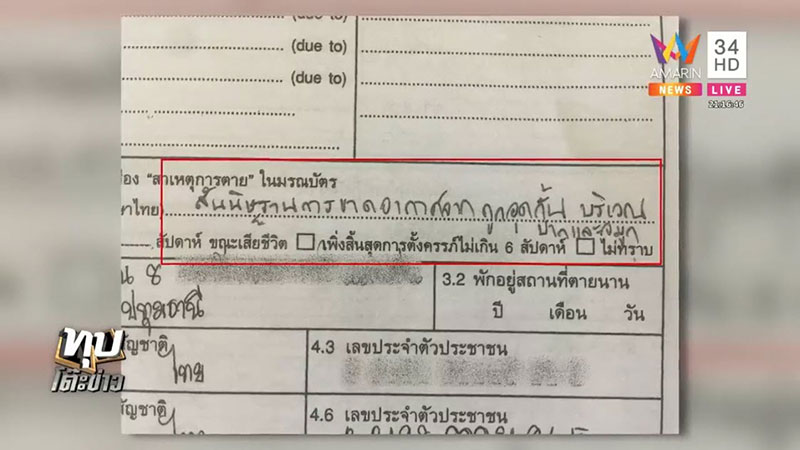 (due to)
(due to)
(due to)
AMARIN
NEWS
34
HD
LIVE
21:16:46
ช่อง "สาเหตุการตาย" ในมรณบัตร
ภาษาไทย)
สันนิษฐานการขาดอากาศจาก ถูกอุดกั้น บริเวณ
ปากและจมูก
สัปดาห์ ขณะเสียชีวิต เพิ่งสิ้นสุดการตั้งครรภ์ไม่เกิน 6 สัปดาห์ ไม่ทราบ
8
3.2 พักอยู่สถานที่ตายนาน
ปทุมธานี
ปี เดือน วัน
ทุบ
โต๊ะข่าว
สัญชาติ
4.3 เลขประจำตัวประชาชน
ไทย
สัญชาติ
4.6 เลขประจำตัวประชาชน